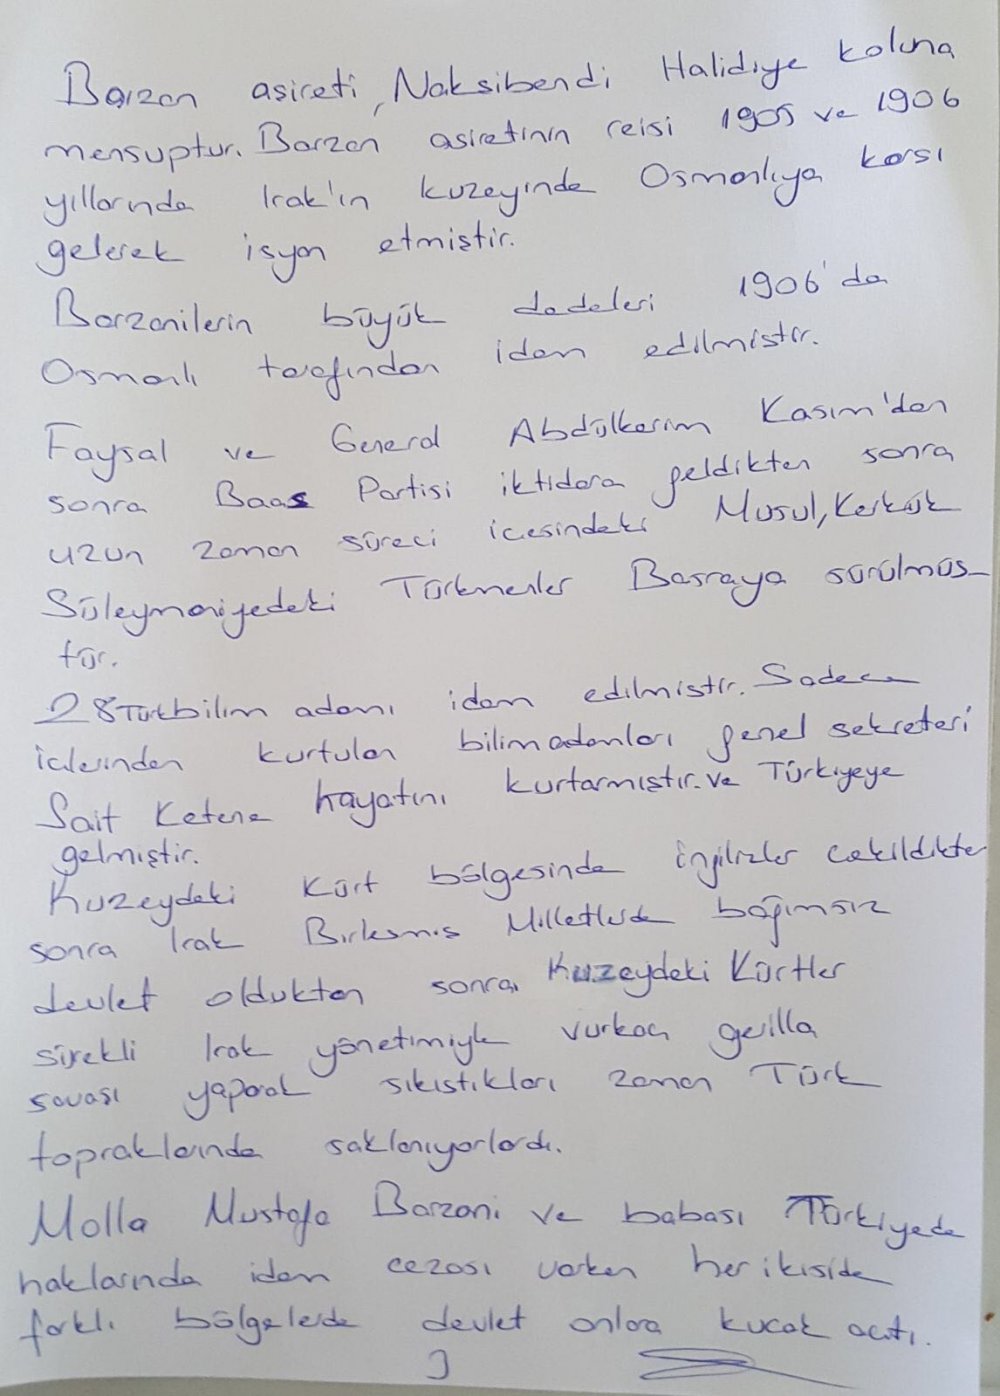 Barzan aşireti, Nakşibendi Halidiye koluna
mensuptur. Barzan aşiretinin reisi 1905 ve 1906
yıllarında Irak'ın kuzeyinde Osmanlıya karşı
gelerek isyan etmiştir.
Barzanilerin büyük dedeleri 1906'da
Osmanlı tarafından idam edilmiştir.
Faysal ve General Abdülkerim Kasım'dan
sonra Baas Partisi iktidara geldikten sonra
uzun zaman süreci içesindeki Musul, Kerkük
Süleymaniyedeki Türkmenler Basraya sürülmüş-
tür.
28 Türk bilim adamı idam edilmiştir. Sadece
içlerinden kurtulan bilim adamları genel sekreteri
Sait Ketene hayatını kurtarmıştır. ve Türkiyeye
gelmiştir.
Kuzeydeki Kürt bölgesinde İngilizler çekildikten
sonra Irak Birleşmiş Milletlerde bağımsız
devlet olduktan sonra Kuzeydeki Kürtler
sürekli Irak yönetimiyle vurkaç gerilla
savaşı yaparak sıkıştıkları zaman Türk
topraklarında saklanıyorlardı.
Molla Mustafa Barzani ve babası Türkiyede
haklarında idam cezası varken her ikiside
farklı bölgelerde devlet onlara kucak açtı.